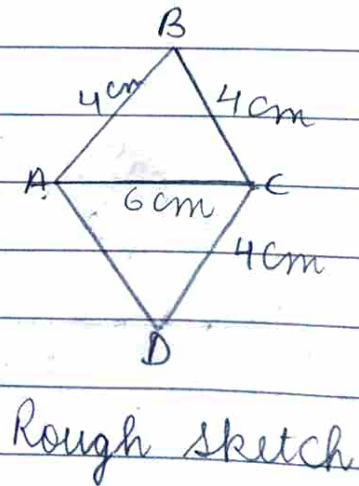 B
4 cm 4 cm
A C
6 cm
4 cm
D
Rough sketch